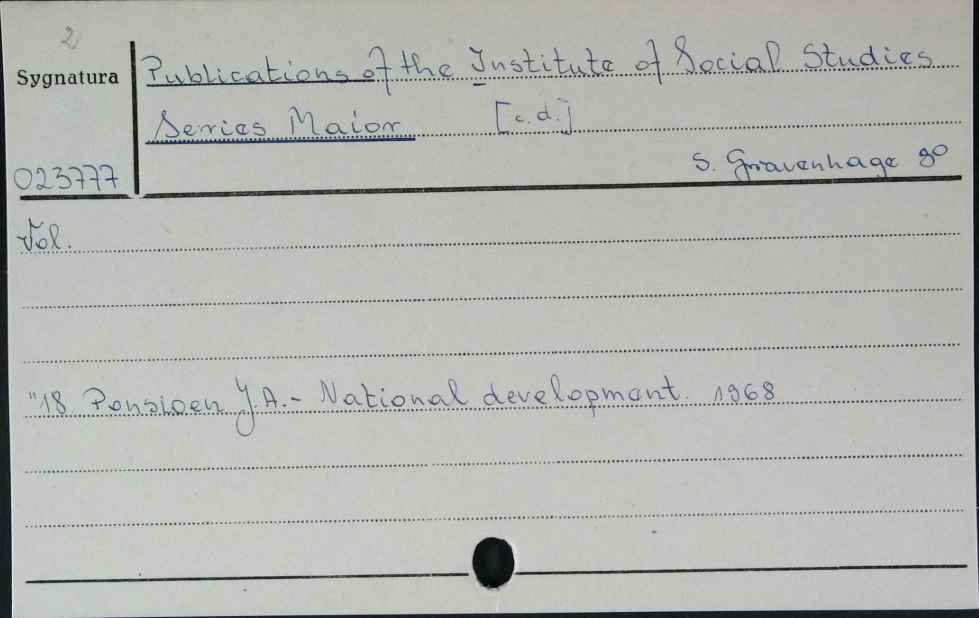 2
Sygnatura
Publications of the Institute of Social Studies
Series Maior [c.d.]
023777
S. Gravenhage 8°
Vol.
"18 Ponsioen J.A. - National development. 1968